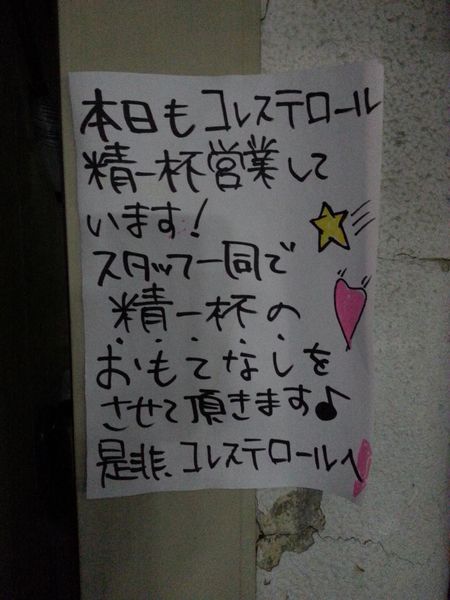 本日もコレステロール
精一杯営業して
います!
スタッフ一同で
精一杯の
おもてなしを
させて頂きます♪
是非、コレステロールへ